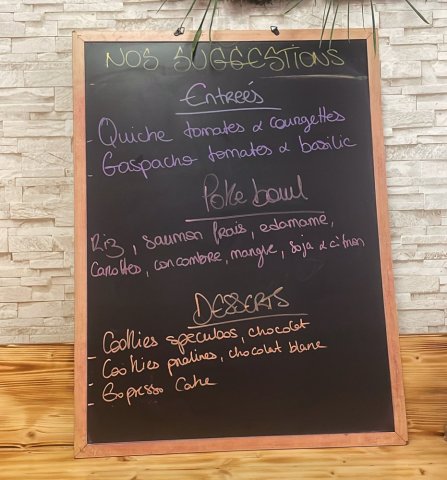 NOS SUGGESTIONS
Entreés
- Quiche tomates & courgettes
- Gaspacho tomates & basilic
Poke bowl
Riz, saumon frais, edamamé,
Carottes, concombre, mangue, soja & citron
DESSERTS
- Cookies speculoos, chocolat
- Cookies pralines, chocolat blanc
- Expresso Cake